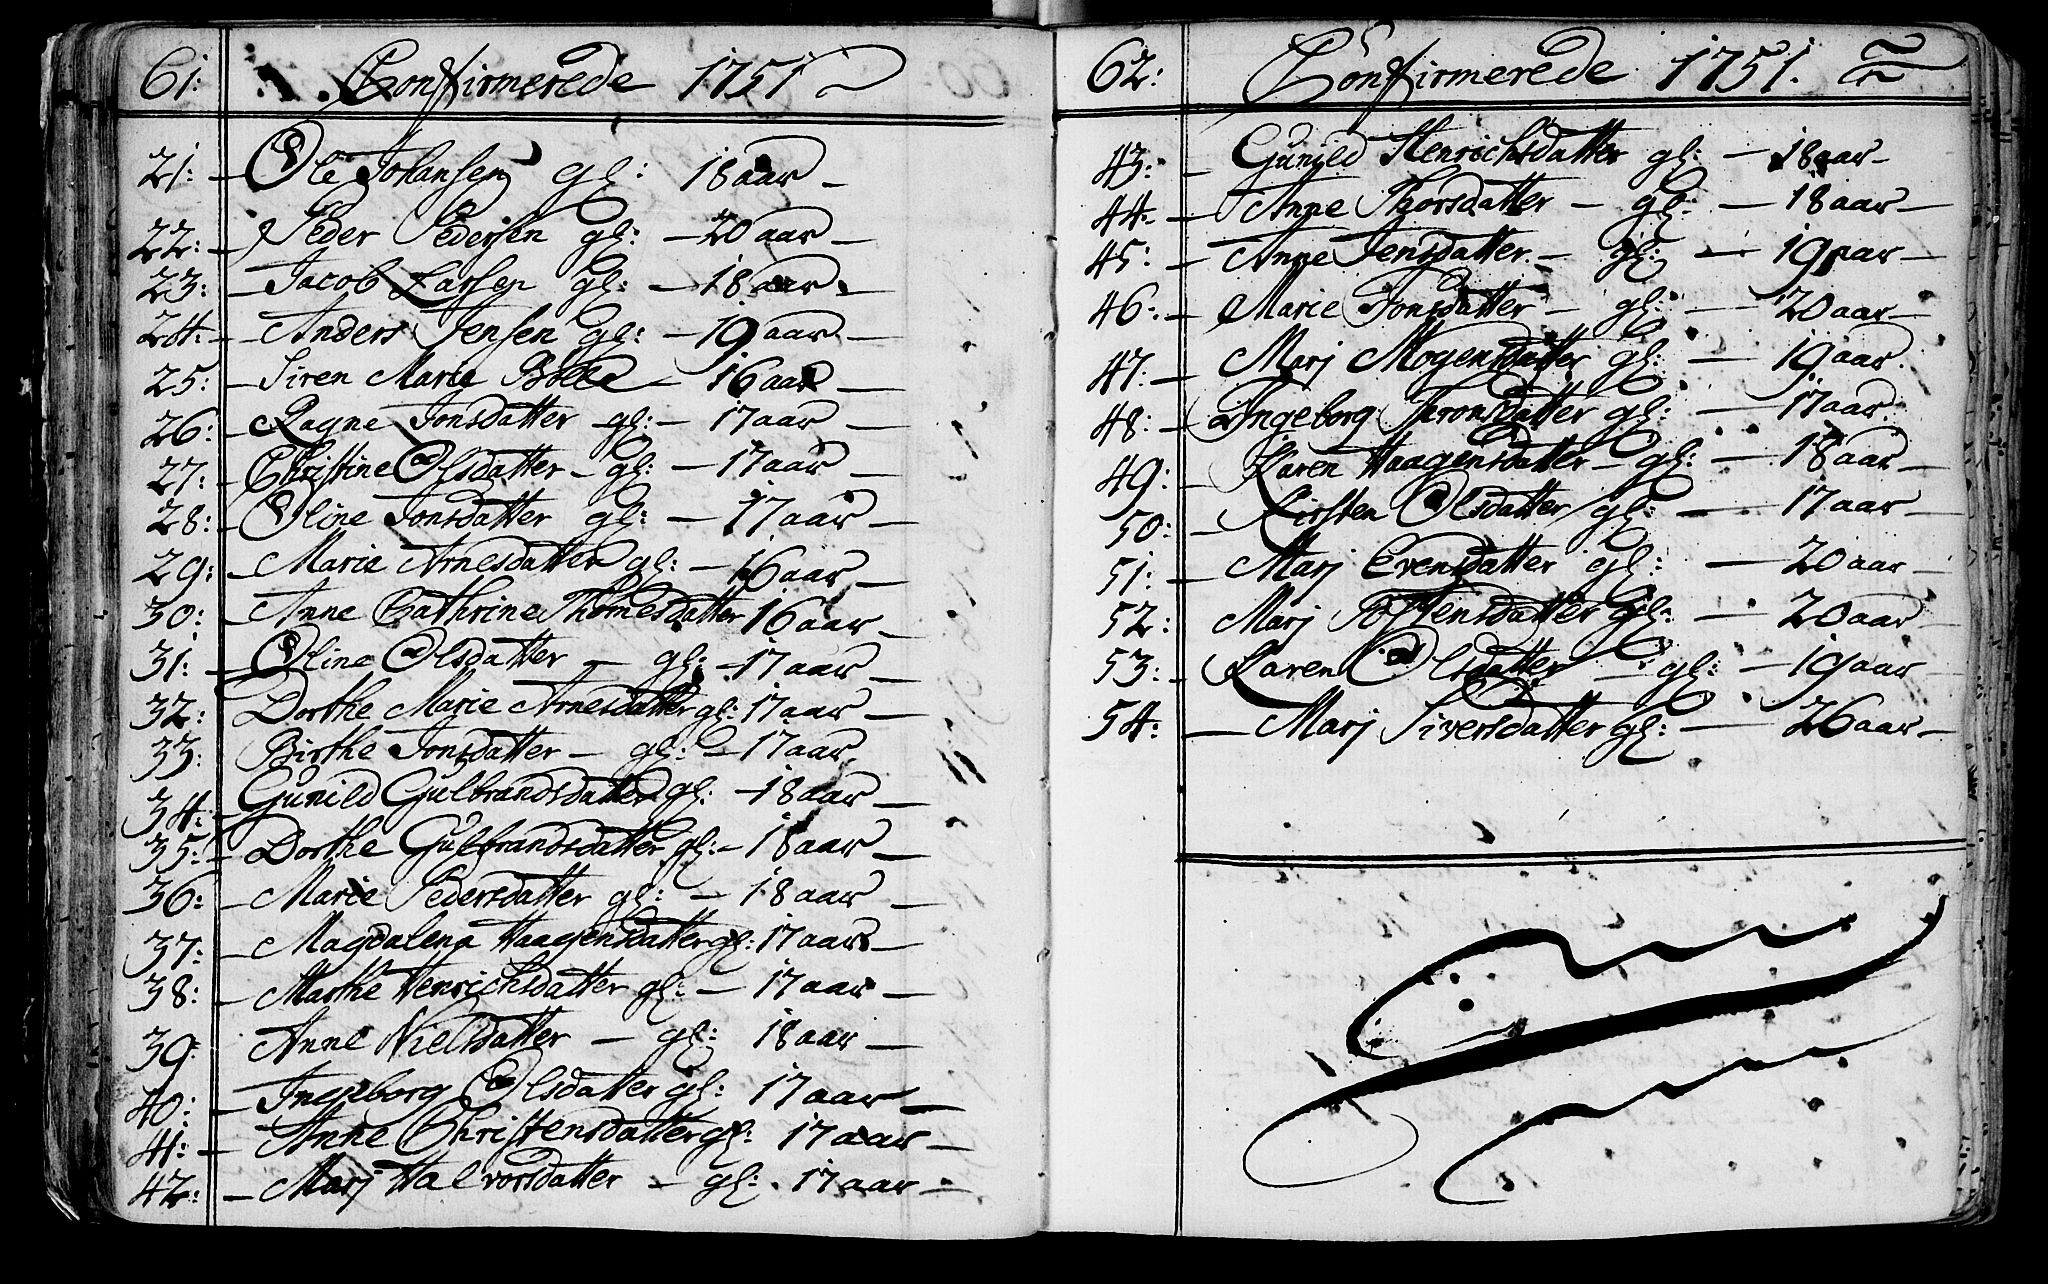 61: Confirmerede 1751
21: Ole Johansen gl: 18 aar
22: Peder Pedersen gl: 20 aar
23: Jacob Larsen gl: 18 aar
24: Anders Jensen gl: 19 aar
25: Siren Marie 16 aar
26: Ragne Jonsdatter gl: 17 aar
27: Christine Olsdatter gl: 17 aar
28: Oline Jonsdatter gl: 17 aar
29: Marie Arnesdatter gl: 16 aar
30: Anne Cathrine Thomesdatter 16 aar
31: Oline Olsdatter gl: 17 aar
32: Dorthe Marie Arnesdatter gl: 17 aar
33: Birthe Jonsdatter gl: 17 aar
34: Gunild Gulbrandsdatter gl: 18 aar
35: Dorthe Gulbrandsdatter gl: 18 aar
36: Marie Pedersdatter gl: 18 aar
37: Magdalena Haagensdatter gl: 17 aar
38: Marthe Henrichsdatter gl: 17 aar
39: Anne Nielsdatter gl: 18 aar
40: Ingeborg Olsdatter gl: 17 aar
41: Anne Christensdatter gl: 17 aar
42: Marj Halvorsdatter gl: 17 aar
62: Confirmerede 1751.
43: Gunild Henrichsdatter gl: 18 aar
44: Anne Thorsdatter gl: 18 aar
45: Anne Jensdatter gl: 19 aar
46: Marie Jonsdatter gl: 20 aar
47: Marj Mogensdatter gl: 19 aar
48: Ingeborg Tronsdatter gl: 17 aar
49: Karen Haagensdatter gl: 18 aar
50: Kirsten Olsdatter gl: 17 aar
51: Marj Evensdatter gl: 20 aar
52: Marj gl: 20 aar
53: Karen Olsdatter gl: 19 aar
54: Marj Siversdatter gl: 26 aar